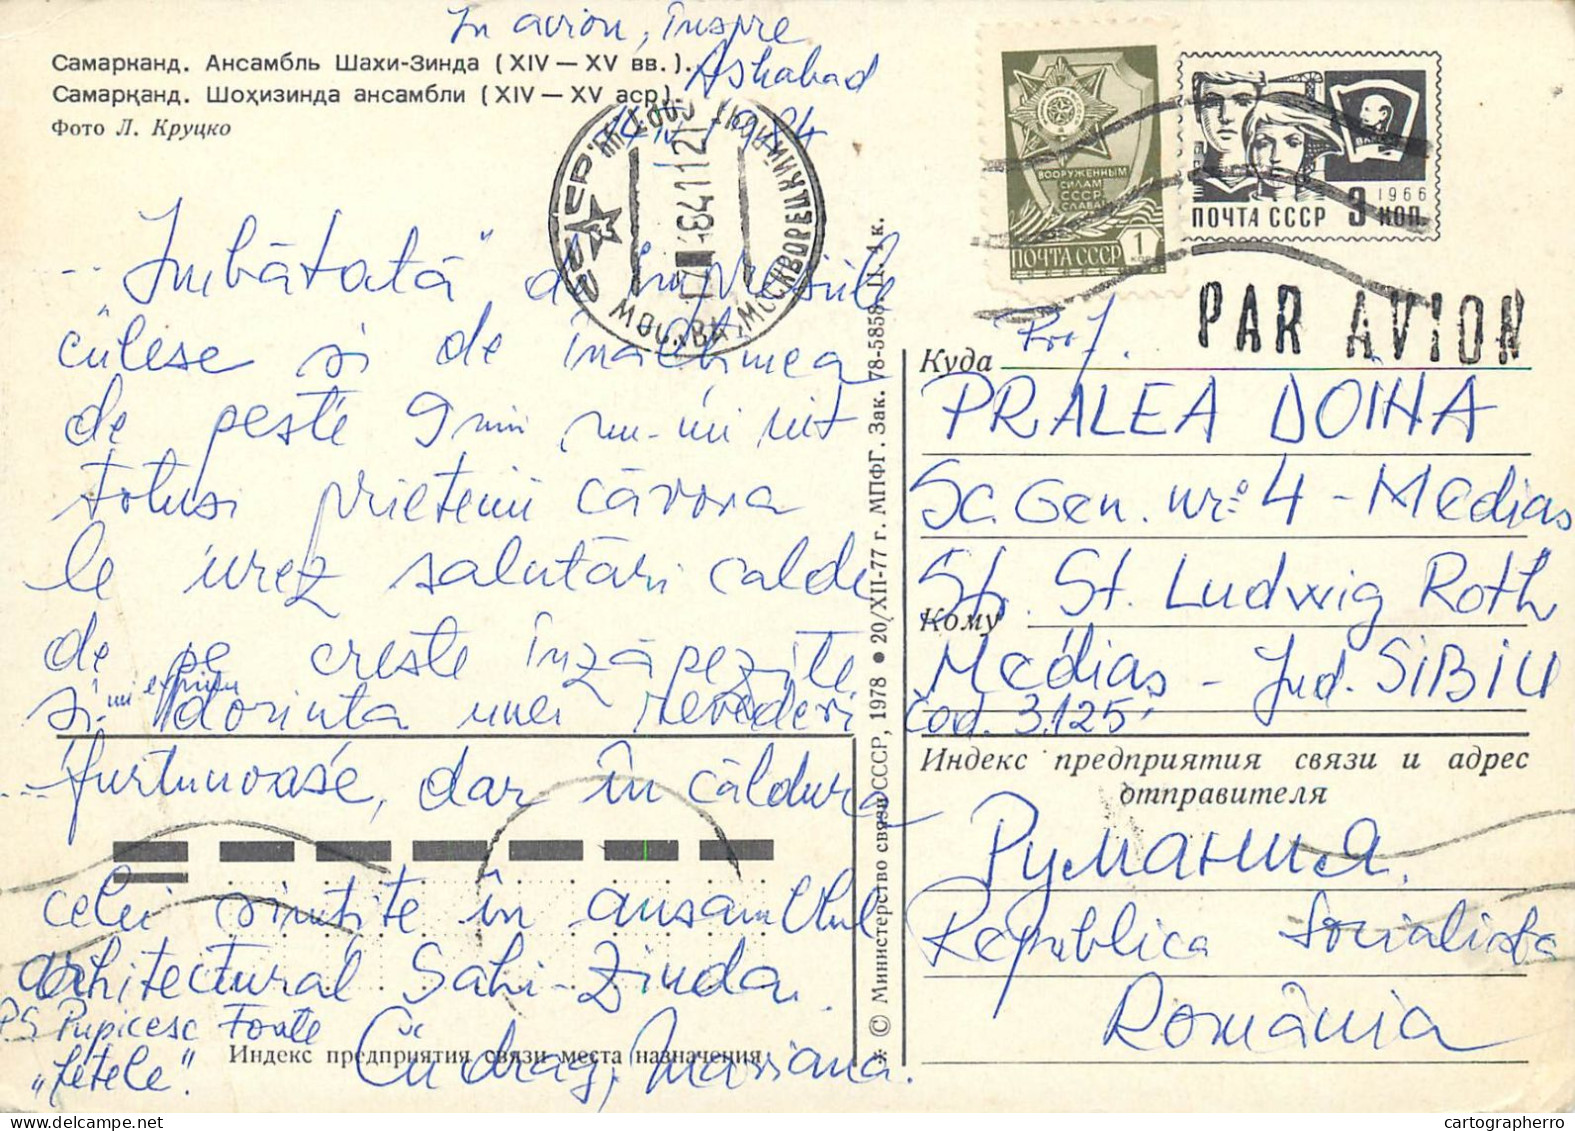 In avion, înspre
Ashabad
1984
Самарканд. Ансамбль Шахи-Зинда (XIV — XV вв.).
Самарқанд. Шоҳизинда ансамбли (XIV — XV аср).
Фото Л. Круцко
ВООРУЖЕННЫМ
СИЛАМ
СССР
СЛАВА!
ПОЧТА СССР 1
КОП
ВЛКСМ
1966
ПОЧТА СССР 3 КОП.
МОСКВА, МОСКВОРЕЦКИЙ
PAR AVION
.. "Îmbătată" de impresiile
culese și de înălțimea
de peste 9 mii nu-mi uit
totuși prietenii cărora
le urez salutări calde
de pe creste înzăpezite
și dorința unei revederi
furtunoase, dar în căldura
celei simțite în ansamblul
arhitectural Sahi-Zinda.
Cu drag, Mariana.
PS Pupicesc Foate
"fetele".
Индекс предприятия связи места назначения
✻ © Министерство связи СССР, 1978 ● 20/XII-77 г. МПФГ. Зак. 78-5858. Ц. 4 к.
Куда Prof.
PRALEA DOINA
Sc. Gen. nr: 4 - Mediaș
Str. St. Ludwig Roth
Кому
Mediaș - Jud. SIBIU
Cod. 3125
Индекс предприятия связи и адрес
отправителя
Румания.
Republica Socialistă
România
cartographerro